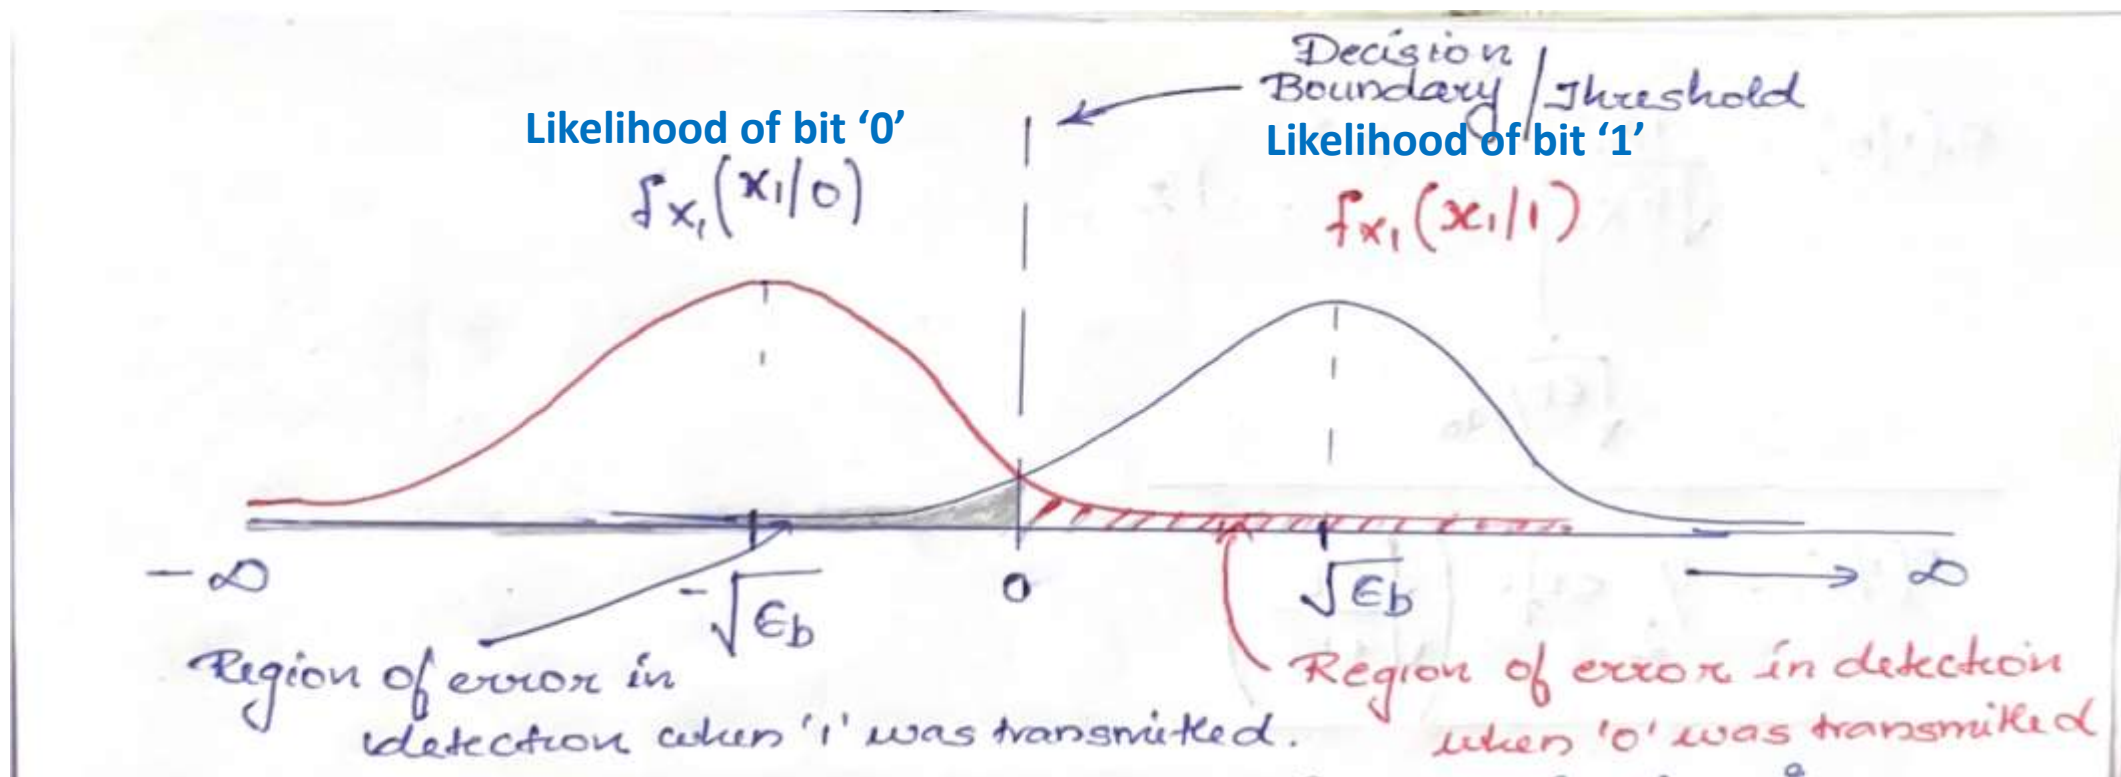 Decision
Boundary / Threshold
Likelihood of bit ‘0’
Likelihood of bit ‘1’
fx₁(x₁/0)
fx₁(x₁/1)
-∞
-√Єb
0
√Єb
∞
Region of error in
detection when '1' was transmitted.
Region of error in detection
when '0' was transmitted